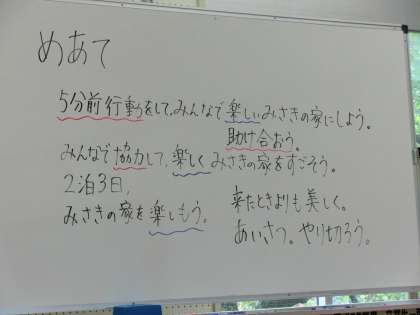 めあて
5分前行動をして、みんなで楽しいみさきの家にしよう。
助け合おう。
みんなで協力して、楽しくみさきの家をすごそう。
2泊3日、
みさきの家を楽しもう。
来たときよりも美しく。
あいさつ。やり切ろう。